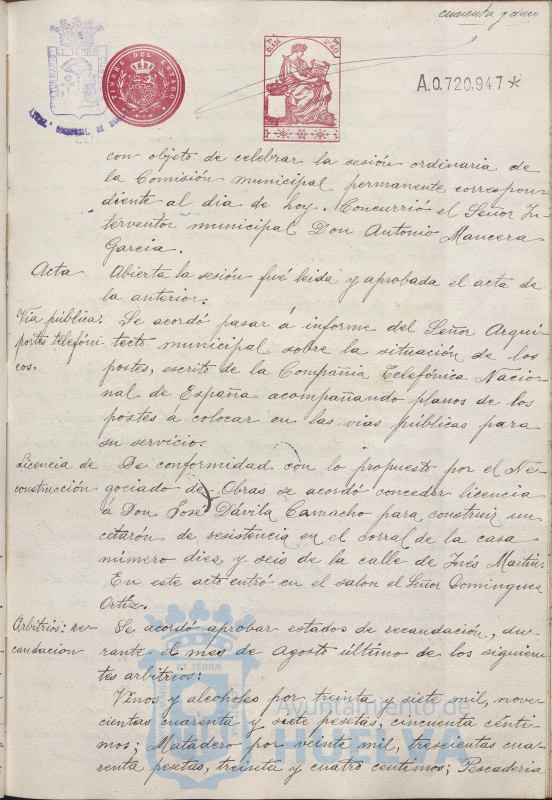 cuarenta y cinco
TIMBRE DEL ESTADO
A.0.720,947*
con objeto de celebrar la sesión ordinaria de
la Comisión municipal permanente correspon-
diente al día de hoy. Concurrió el Señor In-
terventor municipal Don Antonio Mancera
García.
Acta Abierta la sesión fué leida y aprobada el acta de
la anterior.
Vía pública: Se acordó pasar á informe del Señor Arqui-
postes telefóni- tecto municipal sobre la situación de los
cos. postes, escrito de la Compañia Telefónica Nacio-
nal de España acompañando planos de los
postes á colocar en las vias públicas para
su servicio.
Licencia de De conformidad con lo propuesto por el Ne-
construcción gociado de Obras se acordó conceder licencia
á Don José Dávila Camacho para construir un
citarón de resistencia en el corral de la casa
número diez y seis de la calle de Inés Martin.
En este acto entró en el salon el Señor Dominguez
Ortíz.
Arbitrios: re- Se acordó aprobar estados de recaudación, du-
caudacion rante el mes de Agosto último de los siguien-
tes arbitrios:
Vinos y alcoholes por treinta y siete mil, nove-
cientas cuarenta y siete pesetas, cincuenta cénti-
mos; Matadero por veinte mil, trescientas cua-
renta pesetas, treinta y cuatro centimos; Pescaderia
Ayuntamiento de
HUELVA